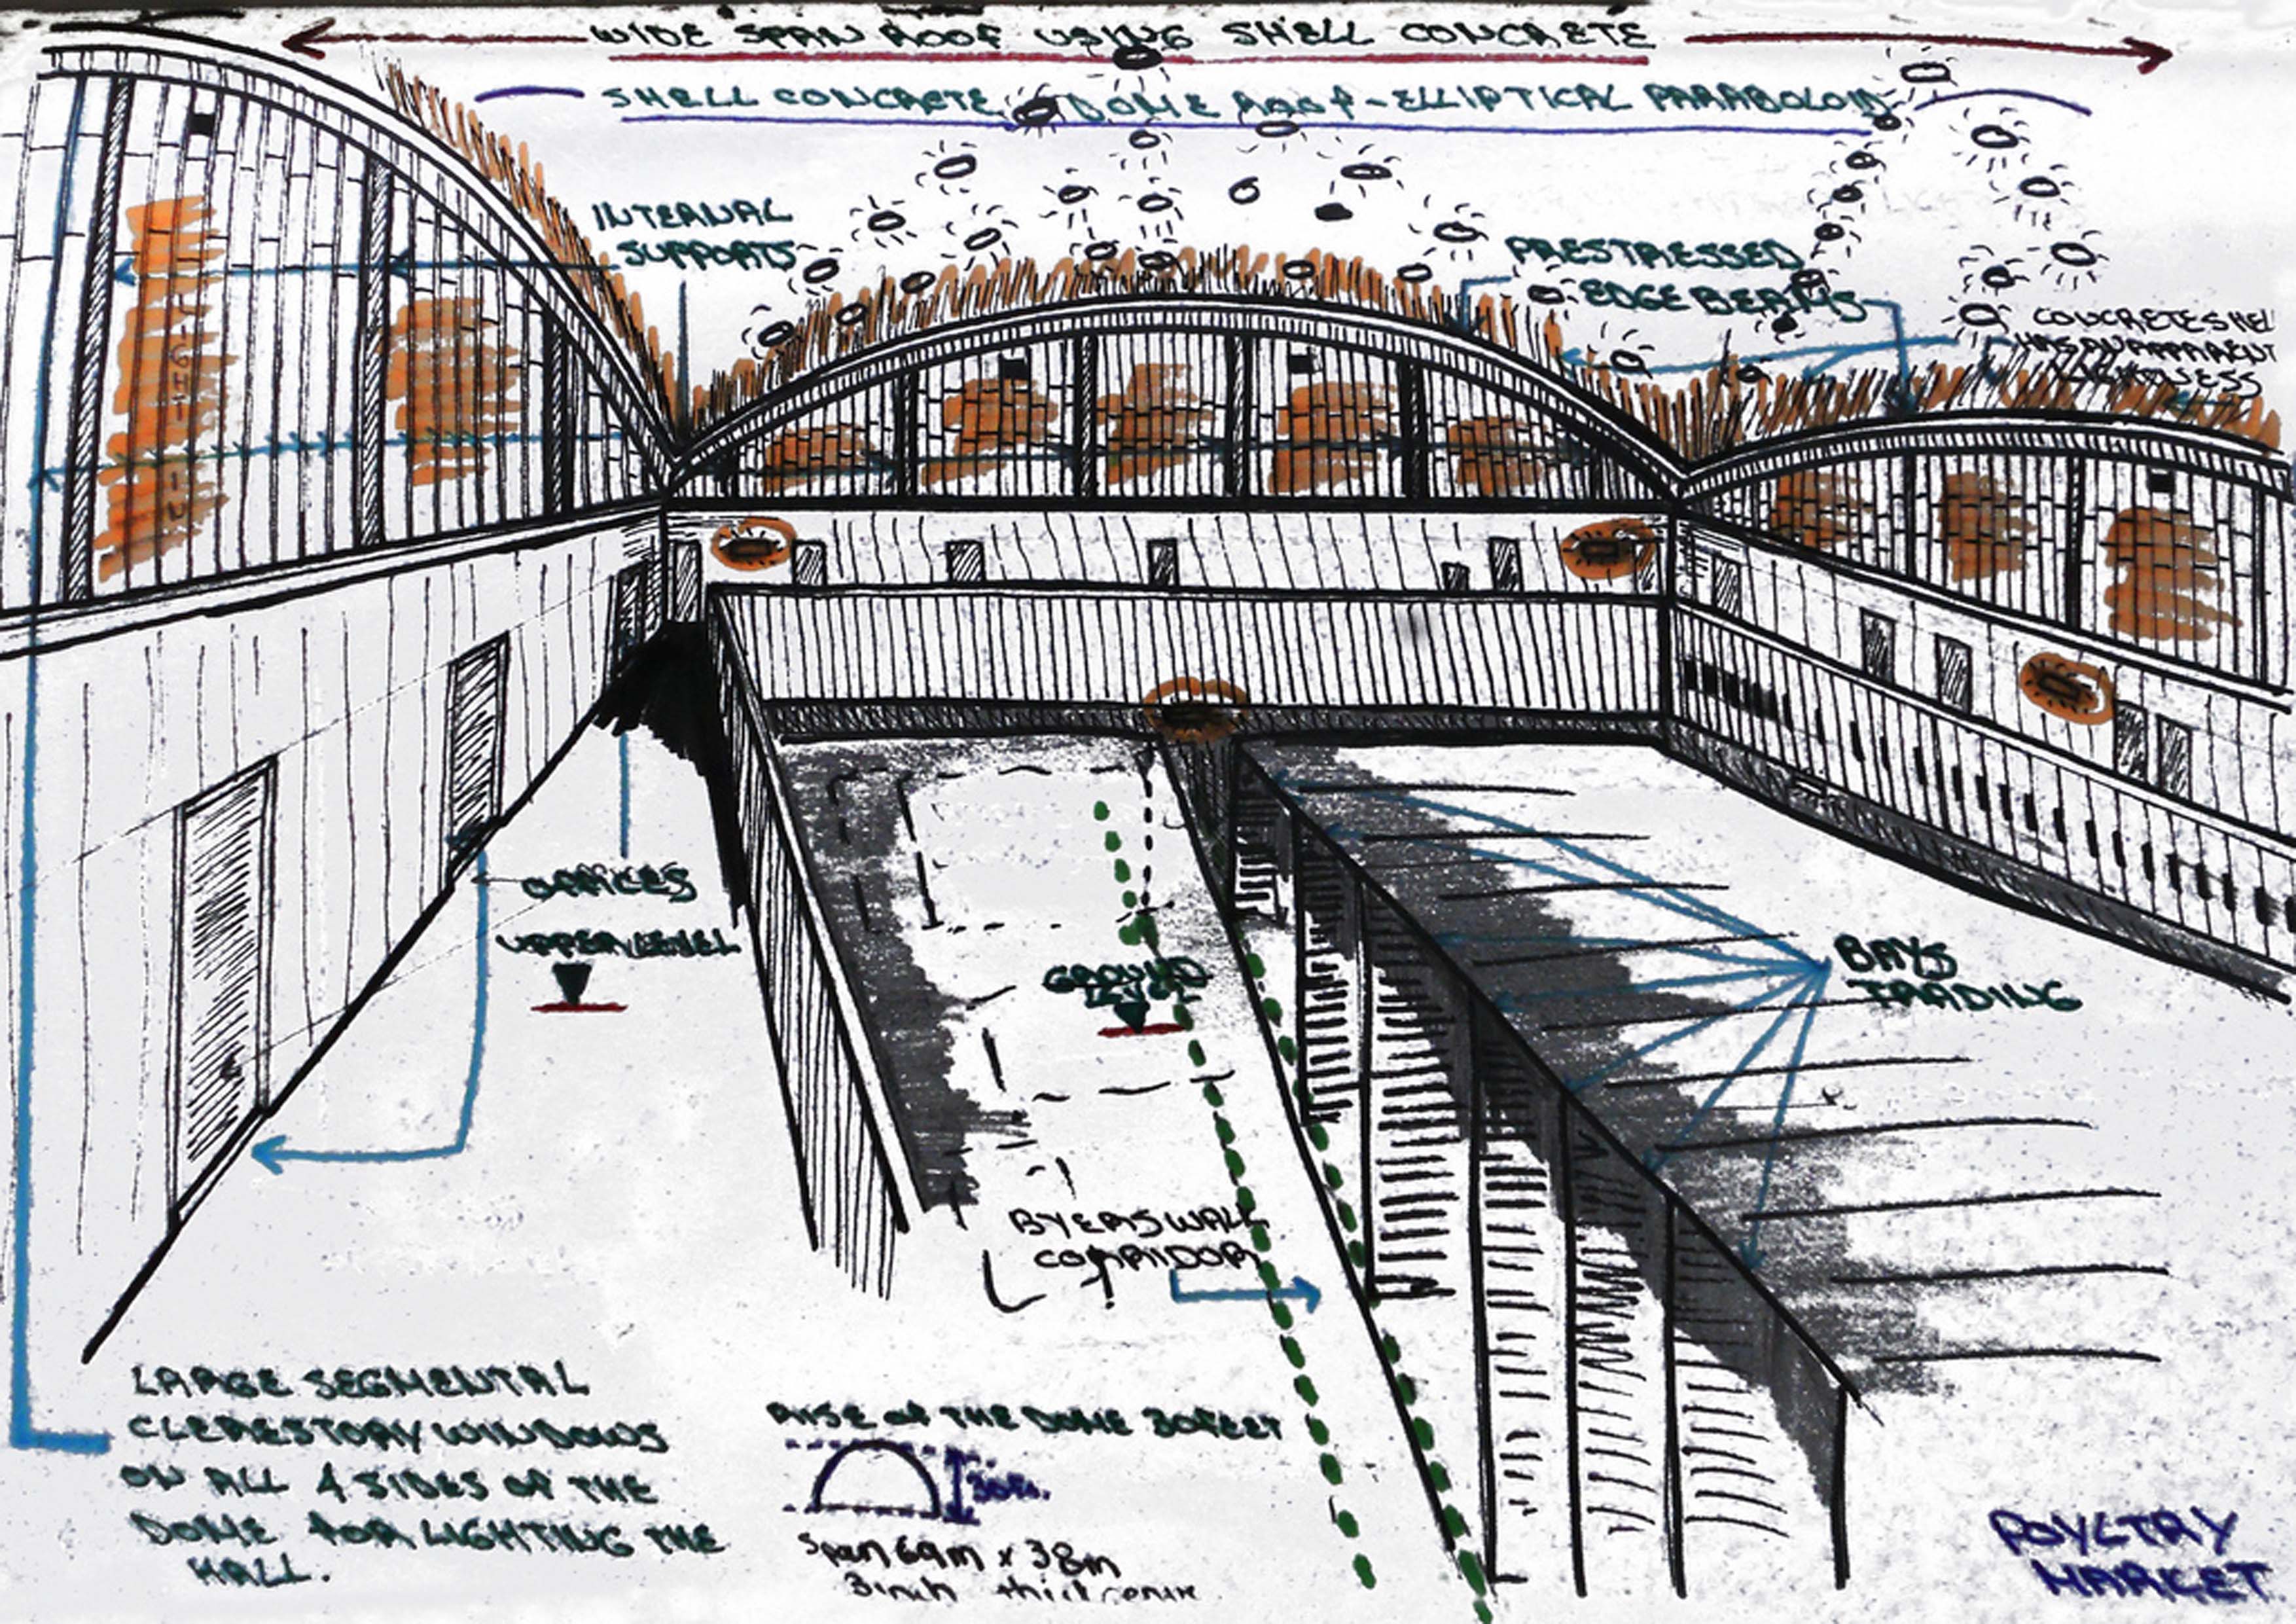 WIDE SPAN ROOF USING SHELL CONCRETE
SHELL CONCRETE DOME ROOF - ELLIPTICAL PARABOLOID
INTERNAL
SUPPORTS
PRESTRESSED
EDGE BEAMS
CONCRETE SHEL
HAS AN APPARENT
LIGHT IN
OFFICES
UPPER LEVEL
GROUND
LEVEL
BAYS
TRADING
BYERS WALL
CORRIDOR
LARGE SEGMENTAL
CLERESTORY WINDOWS
ON ALL 4 SIDES OF THE
DOME FOR LIGHTING THE
HALL.
RISE OF THE DOME 30FEET
30ft.
Span 69m x 38m
3inch thick
POYLTRY
MARKET